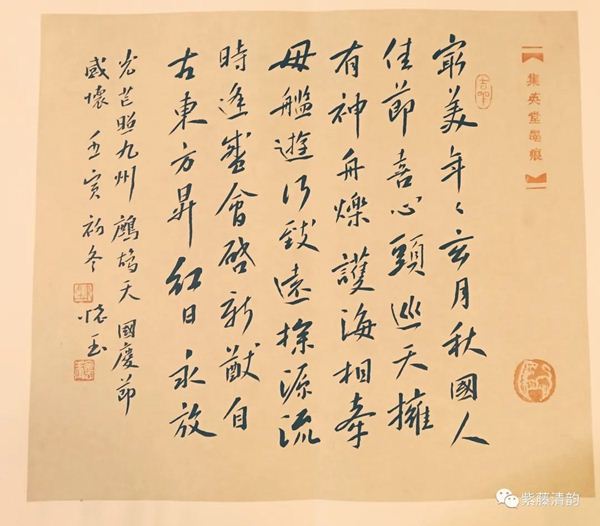 集英堂墨痕
最美年々玄月秋國人
佳節喜心頭巡天擁
有神舟爍護海相牽
母艦遊行致遠探源流
時逢盛會啓新猷自
古東方昇紅日永放
光芒照九州 鷓鴣天 國慶節
感懷 壬寅初冬 玉
紫藤清韵